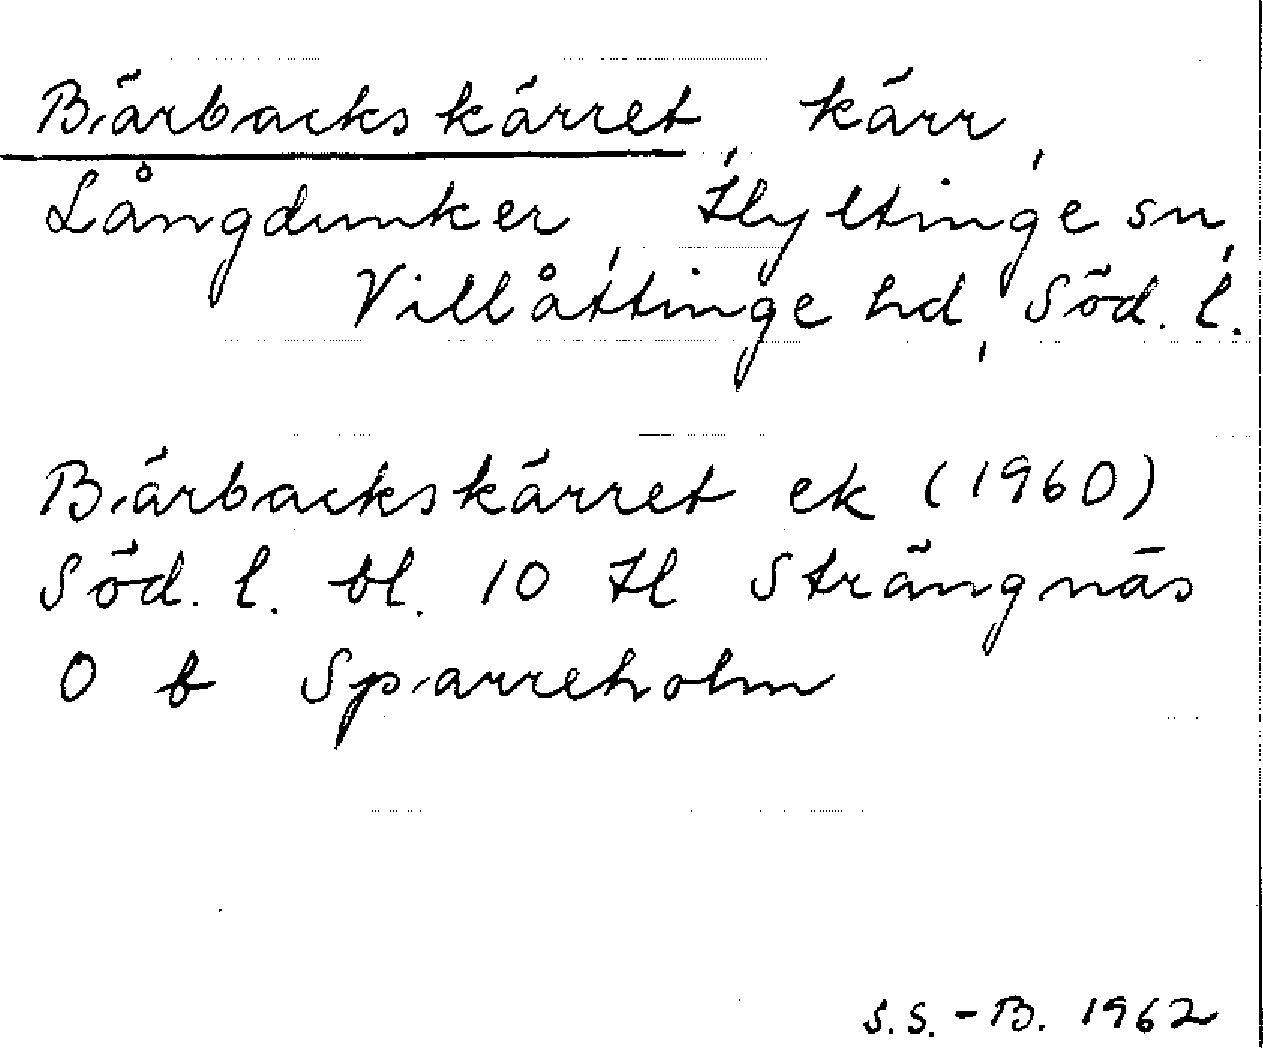 Bärbackskärret, kärr,
Långdunker, Hyltinge sn,
Villåttinge hd, Söd. l.
Bärbackskärret ek (1960)
Söd. l. bl. 10 H Strängnäs
0 b Sparreholm
S.S.-B. 1962